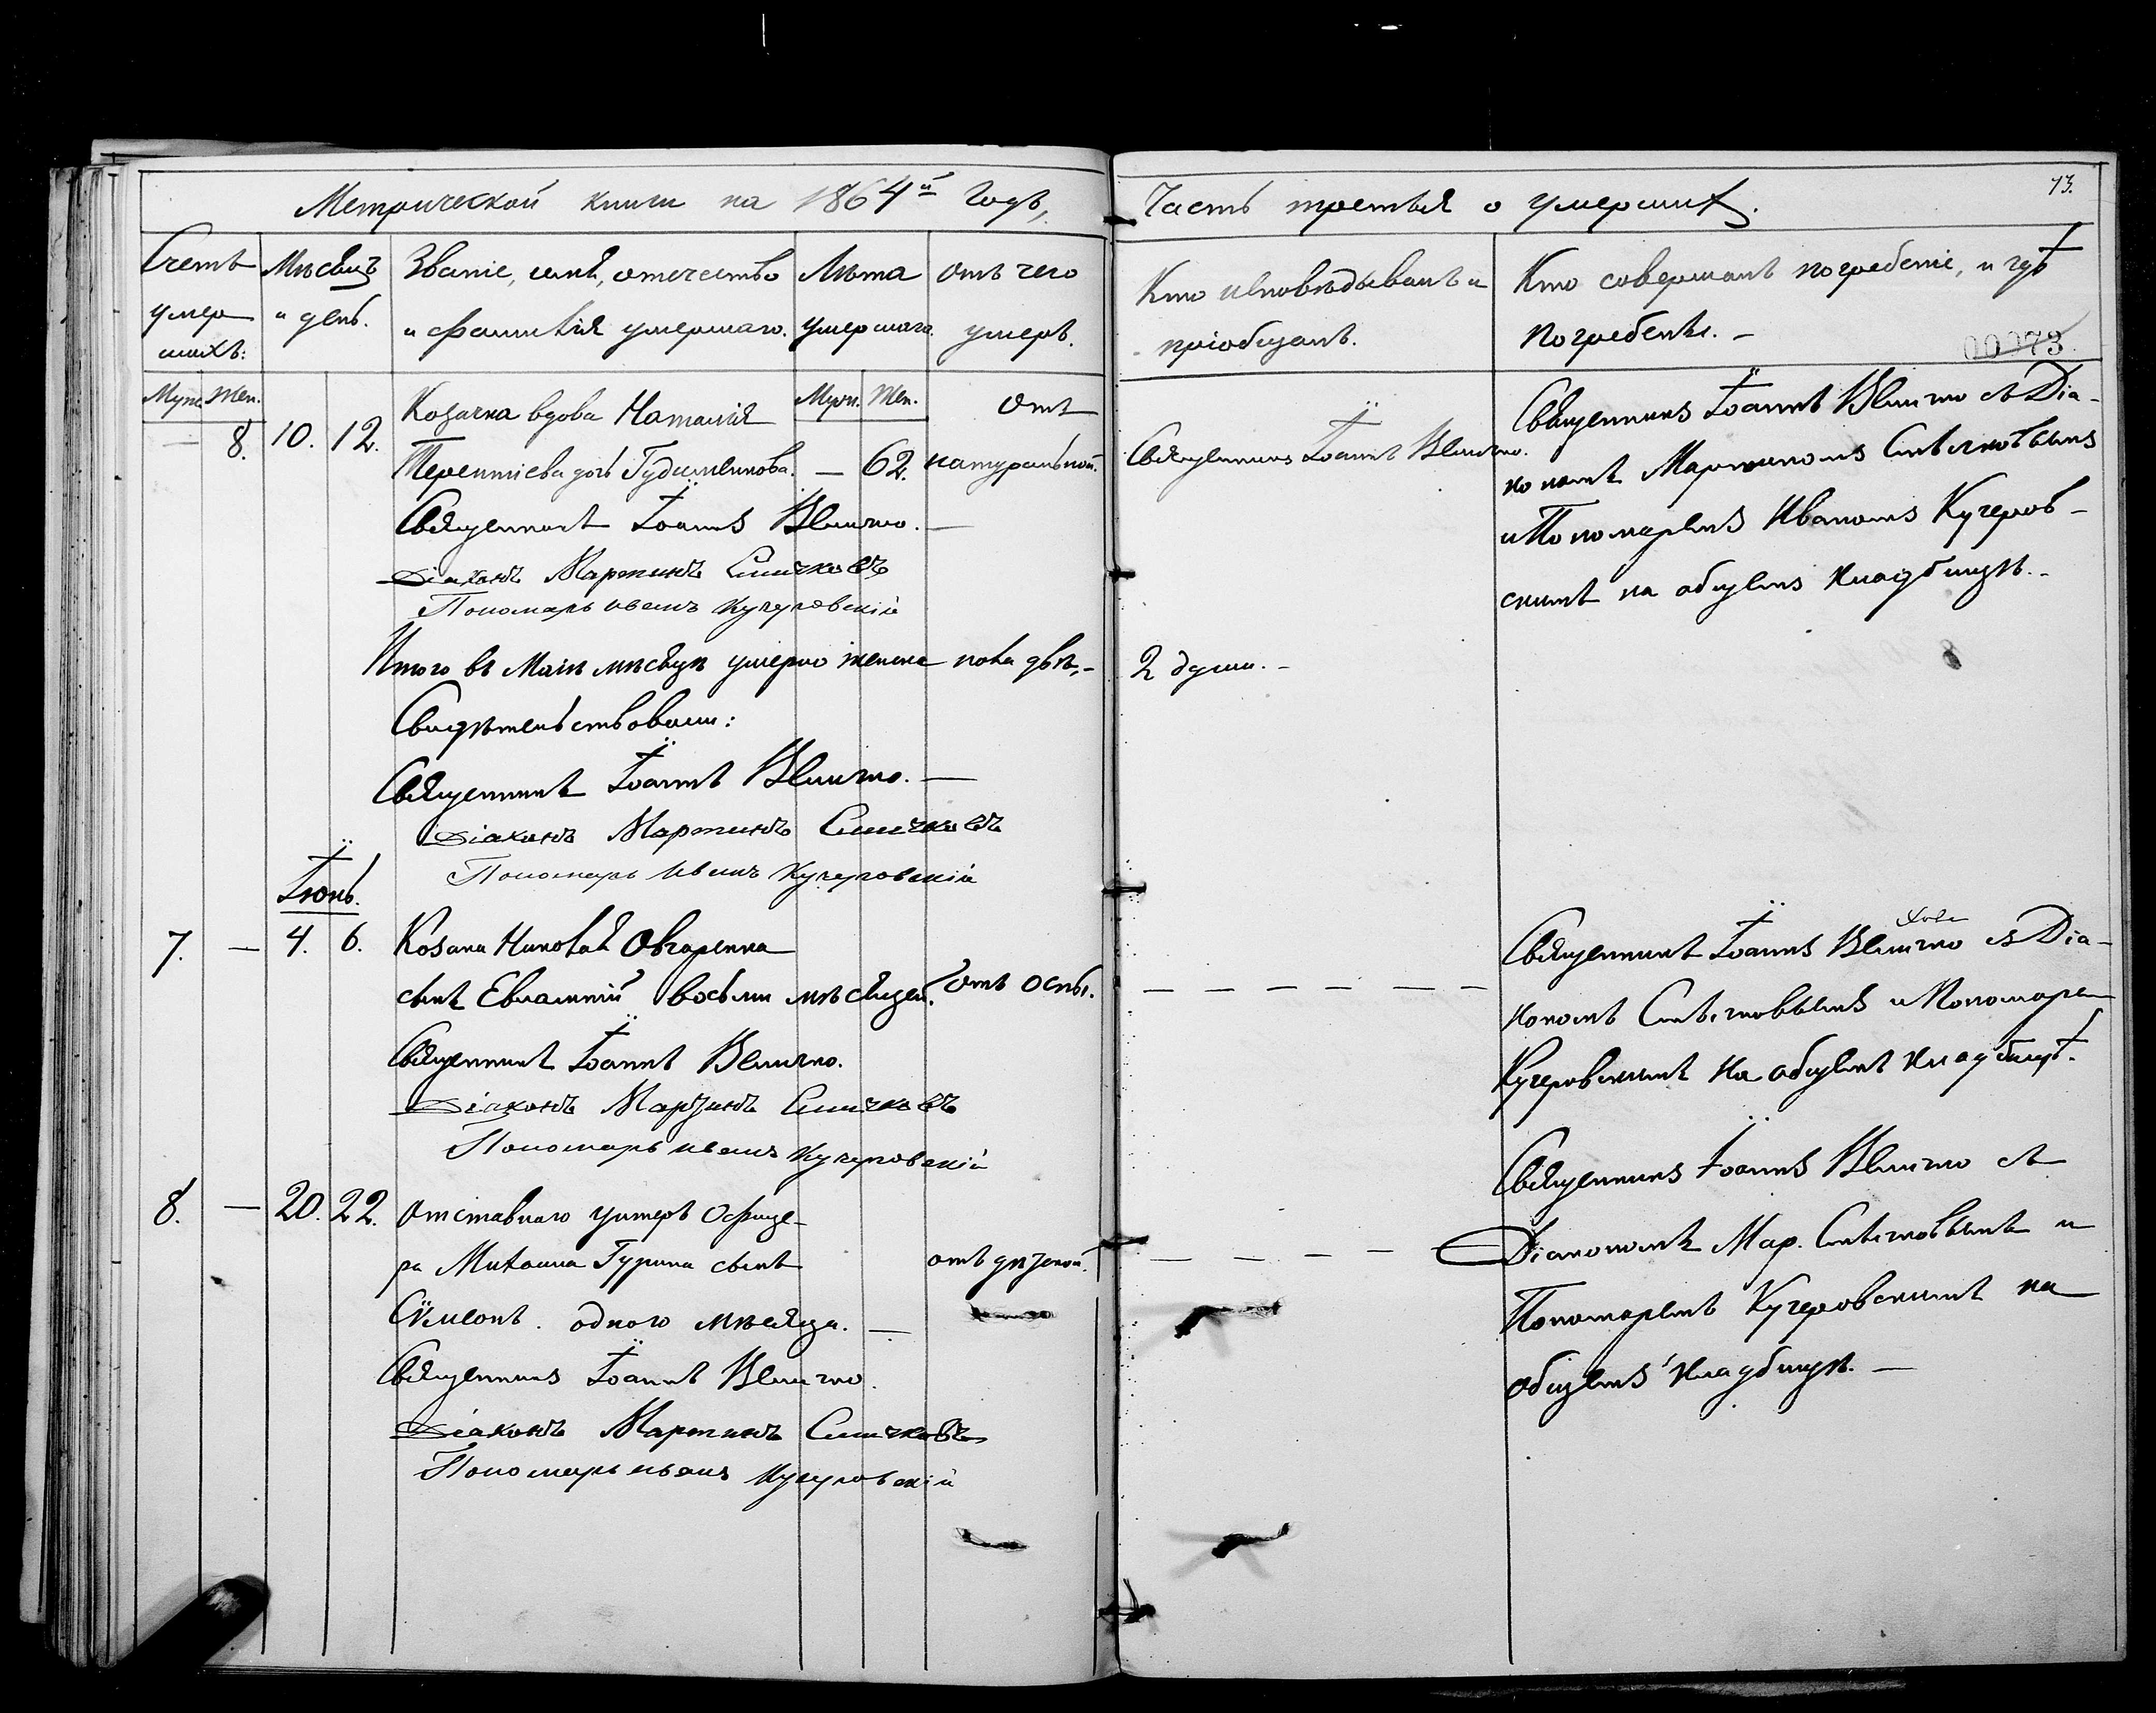 Метрической книги на 1864й годъ,
Счетъ умершихъ:
Мѣсяцъ и день.
Званіе, имя, отечество и фамилія умершаго.
Лѣта умершаго
Отъ чего умеръ.
Муж. Жен.
Муж. Жен.
— 8. 10. 12. Козачка вдова Наталія
Терентіева дочь — 62. Отъ натуральной.
Священникъ Іоаннъ Величко. —
Діаконъ Мартинъ Синичковъ
Пономарь Иванъ Кучеровскій
Итого въ Маіѣ мѣсяцѣ умерло женска пола двѣ, —
Свидѣтельствовали:
Священникъ Іоаннъ Величко. —
Діаконъ Мартинъ Синичковъ
Пономарь Иванъ Кучеровскій
Іюнь.
7. — 4. 6. Козака Николая Овчаренка
сынъ Евлампій восьми мѣсяцей. Отъ оспы.
Священникъ Іоаннъ Величко.
Діаконъ Мартинъ Синичковъ
Пономарь Иванъ Кучеровскій
8. — 20. 22. Отставнаго унтеръ Офице-
ра Михаила Гурина сынъ отъ дѣтской.
Сѵмеонъ. одного мѣсяца. —
Священникъ Іоаннъ Величко.
Діаконъ Мартинъ Синичковъ
Пономарь Иванъ Кучеровскій
Часть третья о умершихъ.
73.
Кто исповѣдывалъ и пріобщалъ.
Кто совершалъ погребеніе, и гдѣ погребены. —
00073
Священникъ Іоаннъ Величко.
Священникъ Іоаннъ Величко съ Діа-
кономъ Мартиномъ Синичковымъ
и Пономаремъ Иваномъ Кучеров-
скимъ на общемъ кладбищѣ. —
2 души. —
Священникъ Іоаннъ Величко съ Діа-
кономъ Синичковымъ и Пономарем
Кучеровскимъ на общемъ кладбищѣ.
Священникъ Іоаннъ Величко съ
Діакономъ Мар. Синичковымъ и
Пономаремъ Кучеровскимъ на
общемъ кладбищѣ. —